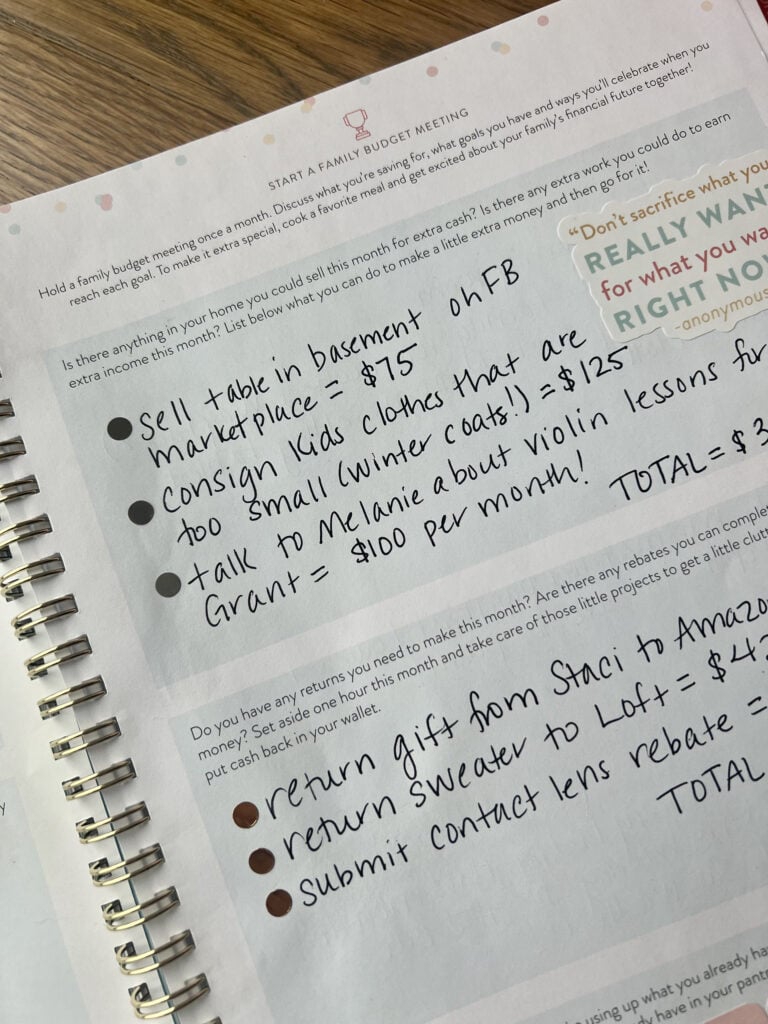 START A FAMILY BUDGET MEETING
Hold a family budget meeting once a month. Discuss what you're saving for, what goals you have and ways you'll celebrate when you
reach each goal. To make it extra special, cook a favorite meal and get excited about your family's financial future together!
Is there anything in your home you could sell this month for extra cash? Is there any extra work you could do to earn
extra income this month? List below what you can do to make a little extra money and then go for it!
"Don't sacrifice what you
REALLY WANT
for what you wa
RIGHT NOW
-anonymous
sell table in basement on FB
marketplace = $75
consign kids clothes that are
too small (winter coats!) = $125
talk to Melanie about violin lessons for
Grant = $100 per month!
TOTAL = $3
Do you have any returns you need to make this month? Are there any rebates you can complete
money? Set aside one hour this month and take care of those little projects to get a little clutt
put cash back in your wallet.
return gift from Staci to Amazo
return sweater to Loft = $42
submit contact lens rebate =
TOTAL
using up what you already ha
dy have in your pantr